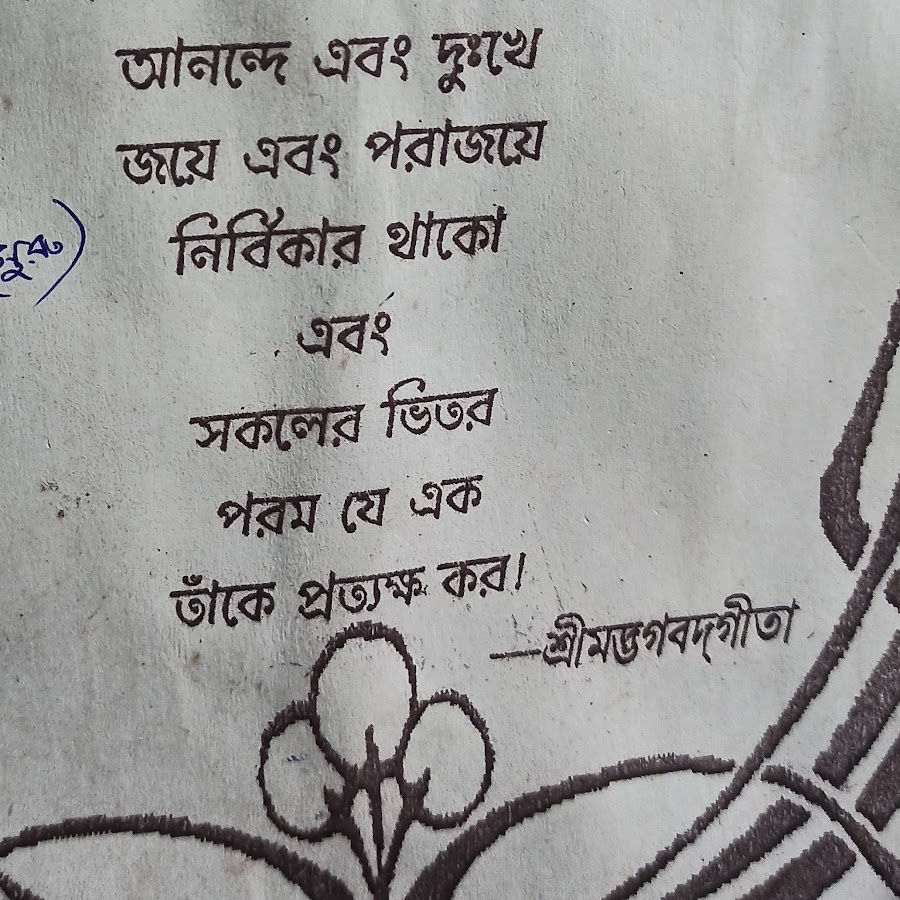 আনন্দে এবং দুঃখে
জয়ে এবং পরাজয়ে
নির্বিকার থাকো
এবং
সকলের ভিতর
পরম যে এক
তাঁকে প্রত্যক্ষ কর।
—শ্রীমদ্ভগবদ্‌গীতা